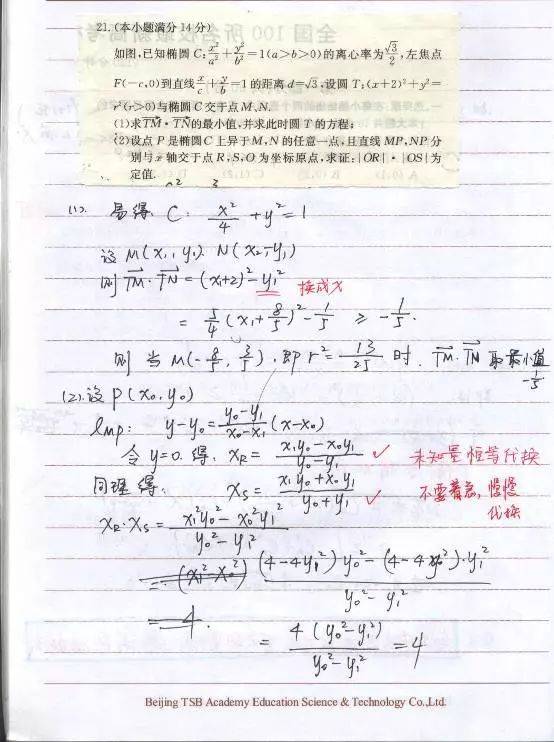 21.(本小题满分14分)
如图,已知椭圆C:x²/a²+y²/b²=1(a>b>0)的离心率为√3/2,左焦点
F(-c,0)到直线x/c+y/b=1的距离d=√3,设圆T:(x+2)²+y²=
r²(r>0)与椭圆C交于点M、N.
(1)求TM·TN的最小值,并求此时圆T的方程;
(2)设点P是椭圆C上异于M,N的任意一点,且直线MP,NP分
别与x轴交于点R,S,O为坐标原点,求证:|OR|·|OS|为
定值.
(1). 易得 C: x²/4 + y² = 1
设 M(x₁, y₁). N(x₂, -y₁)
则 TM·TN = (x₁+2)² - y₁² 换成x
= 5/4 (x₁+8/5)² - 1/5 ≥ -1/5.
则 当 M(-8/5, 3/5), 即 r² = 13/25 时. TM·TN 取最小值
-1/5
(2).设 P(x₀, y₀)
lmp: y-y₀ = (y₀-y₁)/(x₀-x₁) (x-x₀)
令 y=0. 得: x_R = (x₁y₀-x₀y₁)/(y₀-y₁) ✓ 未知量恒等代换
同理得: x_S = (x₁y₀+x₀y₁)/(y₀+y₁) ✓ 不要着急, 慢慢
代换
x_R·x_S = (x₁²y₀²-x₀²y₁²)/(y₀²-y₁²)
= ((4-4y₁²)y₀²-(4-4y₀²)·y₁²)/(y₀²-y₁²)
= 4.
= 4(y₀²-y₁²)/(y₀²-y₁²) = 4
Beijing TSB Academy Education Science & Technology Co.,Ltd.